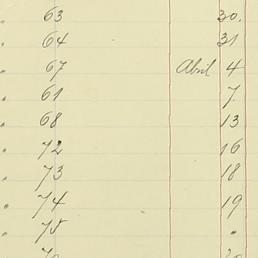 63 30.
64 31
67 Abril 4
61 7.
68 13
72 16
73 18
" 74 19
" 75 "